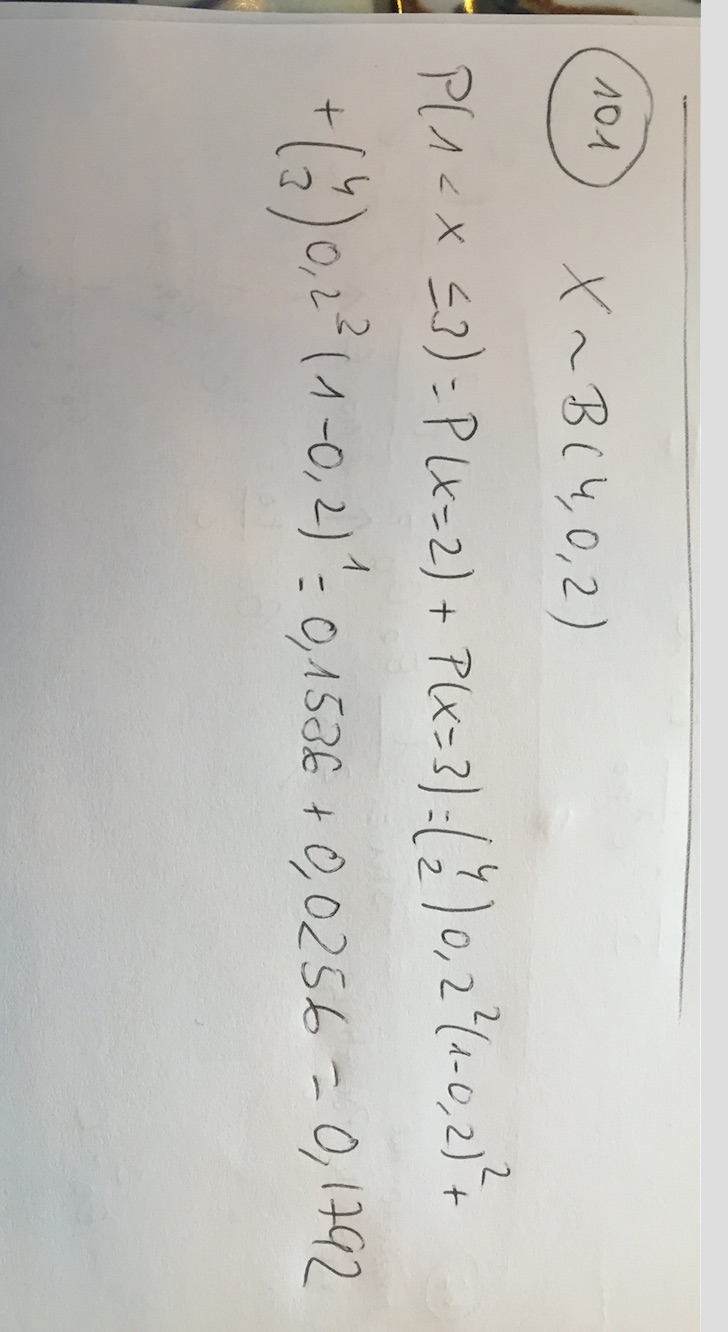 101 X ~ B(4,0,2)
P(1 < x ≤ 3) = P(x=2) + P(x=3) = (4 2) 0,2² (1-0,2)² +
+ (4 3) 0,2³ (1-0,2)¹ = 0,1536 + 0,0256 = 0,1792